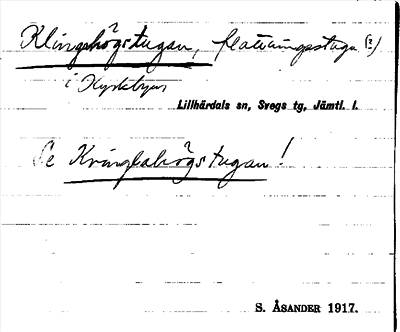 Klingshögstugan, flatningsstuga (?)
i Kyrkbyn
Lillhärdals sn, Svegs tg, Jämtl. l.
Se Kringlahögstugan!
S. ÅSANDER 1917.